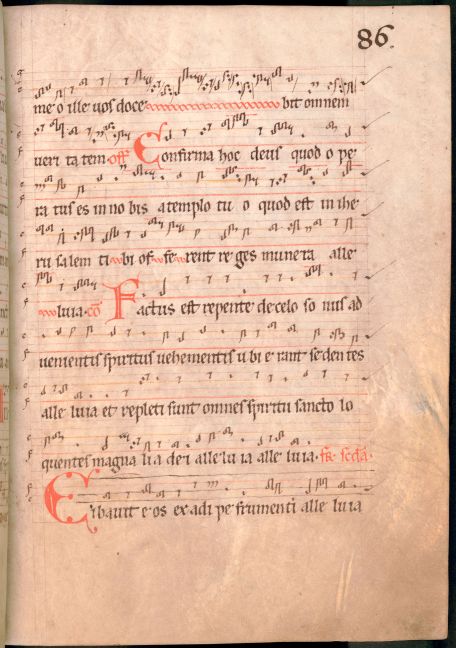 86.
me o ille uos doce bit omnem
ueri ta tem off Confirma hoc deus quod o pe
ra tus es in no bis a templo tu o quod est in ihe
ru salem ti bi of fe rent re ges munera alle
luia co Factus est repente de celo so nus ad
uenientis spiritus uehementis u bi e rant sedentes
alle luia et repleti sunt omnes spiritu sancto lo
quentes magna li a de i alle lu ia alle lu ia. fr scda.
Cibauit e os ex adi pe frumenti alle lu ia